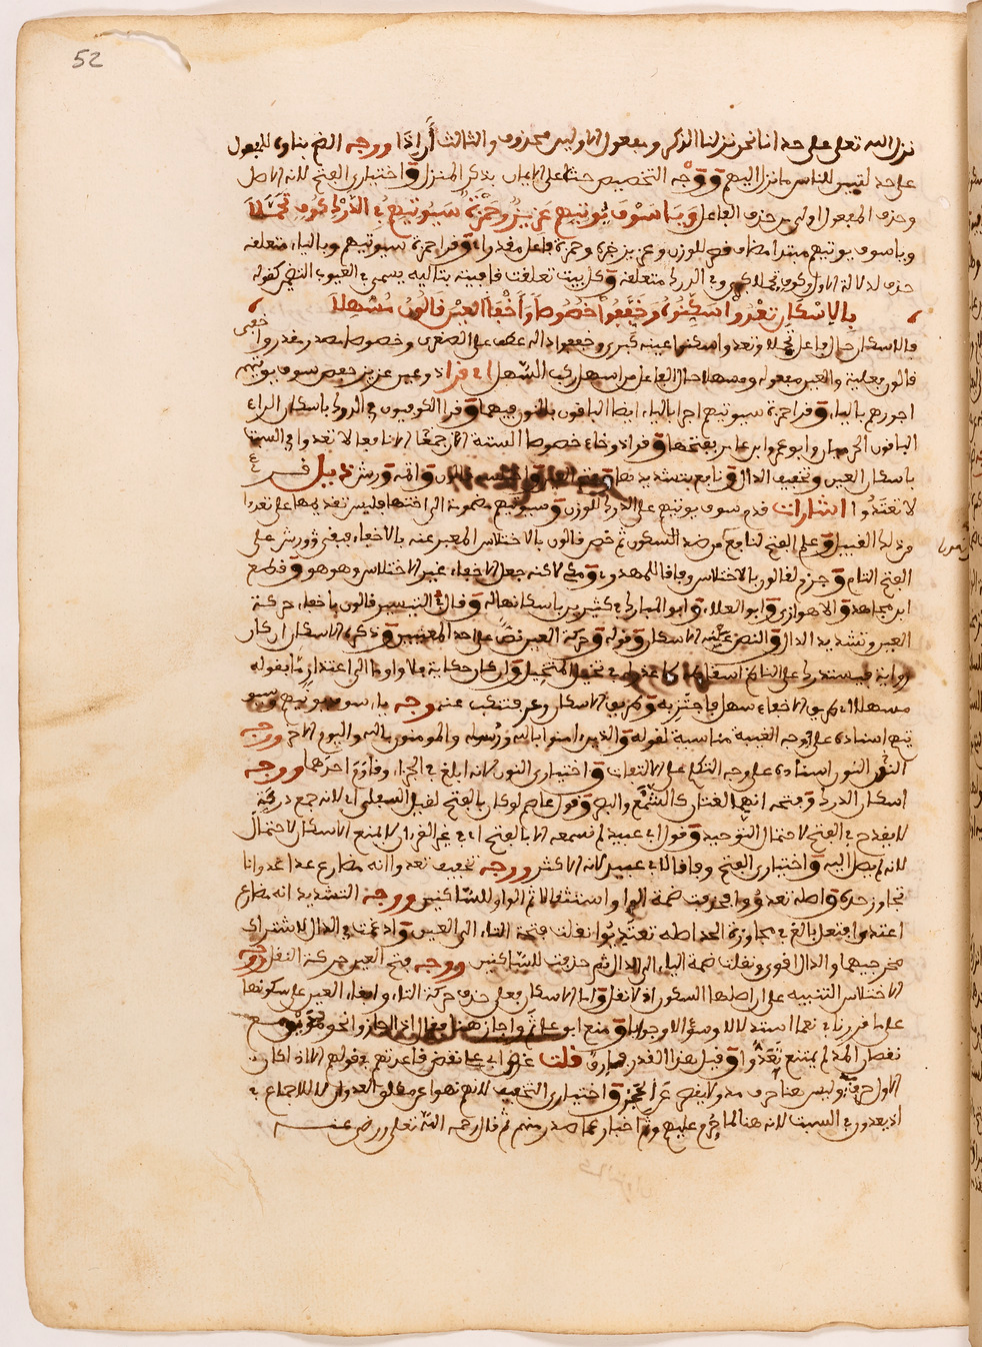 52
نزل الله تعلى على حد انا نحن نزلنا الذكر ومفعول الاولين محذوف والثالث أن إذا ووجه الضم بناوه للمفعول
على حد لتبين للناس ما نزل اليهم ووجه التخصيص حثا على الايمان بذكر المنزل واختياري الفتح لانه الاصل
وحذف المفعول اولى من حذف الفاعل وَيَا سَوْفَ يُوتِيهِمْ عَزِيزٌ وَحَمْزَةٌ سَيُوتِيهِمْ فِي الدَّرْكِ كُوفٍ تَحَمَّلَا
ويا سوف يوتيهم مبتدا مضاف قصر للوزن وعزيز خبره وحمزة فاعل مقدر اي وقرا حمزة سيوتيهم وبالياء متعلقه
حذف لدلالة الاول وكوف تحملا كبرى وفي الدرك متعلقه
بِالِاسْكَانِ تَعْدُوا سَكِّنُوهُ وَخَفِّفُوا خُصُوصًا وَأَخْفَى الْعَيْنَ قَالُونُ مُسْهِلَا
بالاسكان حال فاعل تحملا وتعدوا سكنوا عينه كبرى وخففوا داله عطف على الصغرى وخصوصا مصدر مقدر واخفى
قالون فعلية والعين مفعوله ومسهلا حال الفاعل من اسهل ركب السهل اي قرا ذو عين عزيز حفص سوف يوتيهم
اجورهم بالياء وقرا حمزة سيوتيهم اجرا بالياء ايضا الباقون بالنون فيهما وقرا الكوفيون في الدرك باسكان الراء
الباقون الحرميان وابو عمرو وابن عامر بفتحها وقرا ذو خاء خصوصا الستة الا نافعا لا تعدوا في السبت
باسكان العين وتخفيف الدال ونافع بتشديدها
لا تعتدوا اشارات قدم سوف يوتيهم على الدرك للوزن وسيوتيهم مضمومة الى اختها فليس تقديمها على تعدوا
وعلم الفتح لنافع من ضد السكون ثم خص قالون بالاختلاس المعبر عنه بالاخفاء فبقي ورش على
الفتح التام وجزم لقالون بالاختلاس وفاقا للمهدوي ومكي لاكنه جعل الاخفاء غير الاختلاس وهو هو وقطع
ابن مجاهد والاهوازي وابو العلاء وابو المبارك في كثيرين باسكانها له وقال في التيسير قالون باخفاء حركة
العين وتشديد الدال والنص عنه بالاسكان وقوله وحركة العين نصا على احد المعنيين وذكره الاسكان ان كان
رواية فيستدرك على الناظم اسقاطها
مسهلا الى طريق الاخفاء سهل فاجتز به وطريق الاسكان وعر فتنكب عنه وجه ياء سوف يوتيهم وسو
تيهم اسناده على وجه الغيبة مناسبة لقوله والذين امنوا بالله ورسوله والمومنون بالله واليوم الاخر ووجه
النون اسناده على وجه التكلم على الالتفات واختياري النون لانه ابلغ في الجزاء وفاقا احدهما ووجه
اسكان الدرك وفتحه انهما لغتان كالشمع والبحر وقول عاصم لو كان بالفتح لقيل السفلى اي لانه جمع دركة
لا يقدح في الفتح لاحتمال التوحيد وقول ابي عبيد لم نسمعه الا بالفتح اي في غير القران لا يمنع الاسكان لاحتمال
لانه لم يصل اليه واختياري الفتح وفاقا لابي عبيد لانه الاكثر ووجه تخفيف تعدوا انه مضارع عدا عدوانا
تجاوز حده واصله تعدووا فحذفت ضمة الواو استثقالا ثم الواو للساكنين ووجه التشديد انه مضارع
اعتدى افتعل بالغ في مجاوزة الحد اصله تعتديوا نقلت فتحة التاء الى العين وادغمت في الدال لاشتراك
مخرجيهما والدال اقوى ونقلت ضمة الياء الى الدال ثم حذفت للساكنين ووجه فتح العين حركة النقل ووجه
الاختلاس التنبيه على ان اصلها السكون اذ لا نقل واما الاسكان فعلى حذف حركة التاء وابقاء العين على سكونها
على ما قررنا في نعما استدلالا وسؤالا وجوابا ومنع ابو علي
نقصان المد لم يمتنع تعدوا وقيل هذا القدر فارق قلت غرض ابي علي نقض قاعدتهم في قولهم الا اذا كان
الاول حرف مد وليس هنا حرف مد ولا يقصر عن المجوز واختياري التخفيف لانهم نهوا عن مطلق العدوان لا للاجماع في
اذ يعدون في السبت لانه هنا لما حرم عليهم وثم اخبار بما صدر منهم ثم قال رحمه الله تعلى ورضى عنه